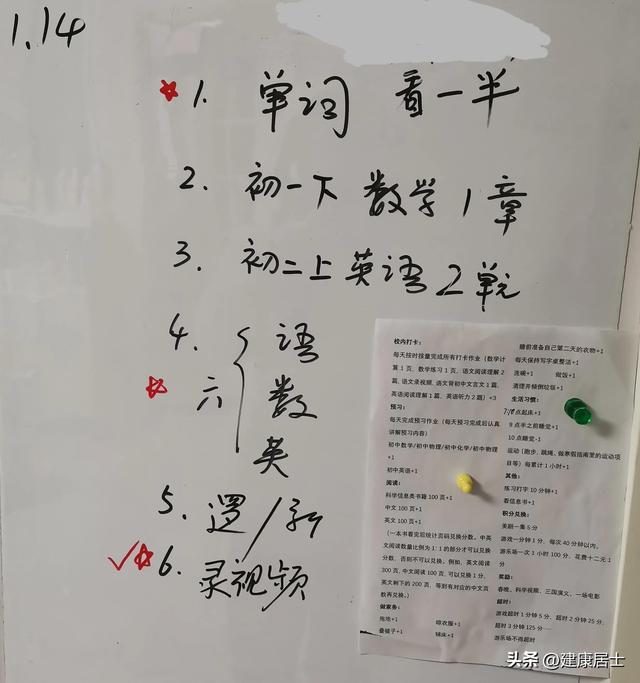 1.14
1. 单词 看一半
2. 初一下 数学1章
3. 初二上英语2单元
4. 语
六 数
英
5. 逻/
6. 录视频
校内打卡:
每天按时按量完成所有打卡作业(数学计
算1页、数学练习1页、语文阅读理解2
篇、语文录视频、语文背初中文言文1篇、
英语阅读理解1篇、英语听力2题)+3
预习:
每天完成预习作业(每天预习完成后认真
讲解预习内容)
初中数学/初中物理/初中化学/初中物理
+1
初中英语+1
阅读:
科学信息类书籍100页+1
中文100页+1
英文100页+1
(一本书看完后统计页码兑换分数。中英
文阅读数量比例为1:1的部分才可以兑换
分数,否则不可以兑换。例如,英文阅读
300页,中文阅读100页,可以兑换1分,
英文剩下的200页,等到有对应的中文页
数再兑换。)
做家务:
拖地+1 晾衣服+1
叠被子+1 铺床+1
睡前准备自己第二天的衣物+1
每天保持写字桌整洁+1
洗碗+1 做饭+1
清理并倾倒垃圾+1
生活习惯:
7点起床+1
9点半之前睡觉+1
10点睡觉-1
运动(跑步、跳绳、做寒假指南里的运动项
目等)每累计1小时+1
其他:
练习打字10分钟+1
看信息书+1
积分兑换:
美剧一集5分
游戏一分钟1分,每次40分钟以内。
游乐场一次1小时100分,花费十二元1
分
奖励:
春晚、科学视频、三国演义、一场电影
超时:
游戏超时1分钟5分,超时2分钟25分,
超时3分钟125分……
游乐场不得超时
头条 @建康居士